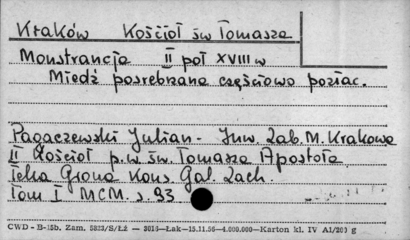 Kraków Kościół św Tomasza
Monstrancja II poł XVIII w
Miedź posrebrzana częściowo pozłac.
Pagaczewski Julian - Inw. Zab. M. Krakowa
II Kościół p.w. św. Tomasza Apostoła
Teka Grona Kons. Gal. Zach.
Tom I MCM. s. 93
CWD - B-15b. Zam. 5823/S/Łż — 3015—Łak—15.11.55—4.000.000—Karton kl. IV A1/203 g